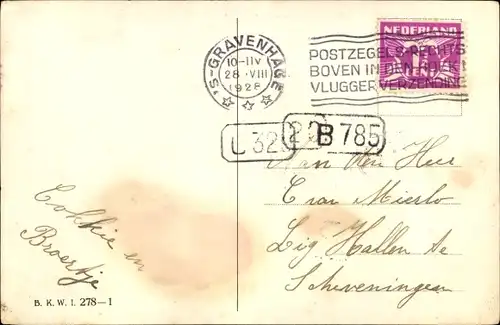 'S-GRAVENHAGE
10-11V
28.VIII
1928
POSTZEGELS RECHTS
BOVEN IN DEN HOEK!
VLUGGER VERZENDING
NEDERLAND
L 32
22
B 785
Aan den Heer
C van Mierlo
Zig Hallen
Scheveningen
Cokkie en
Broertje
B. K. W. I. 278-1